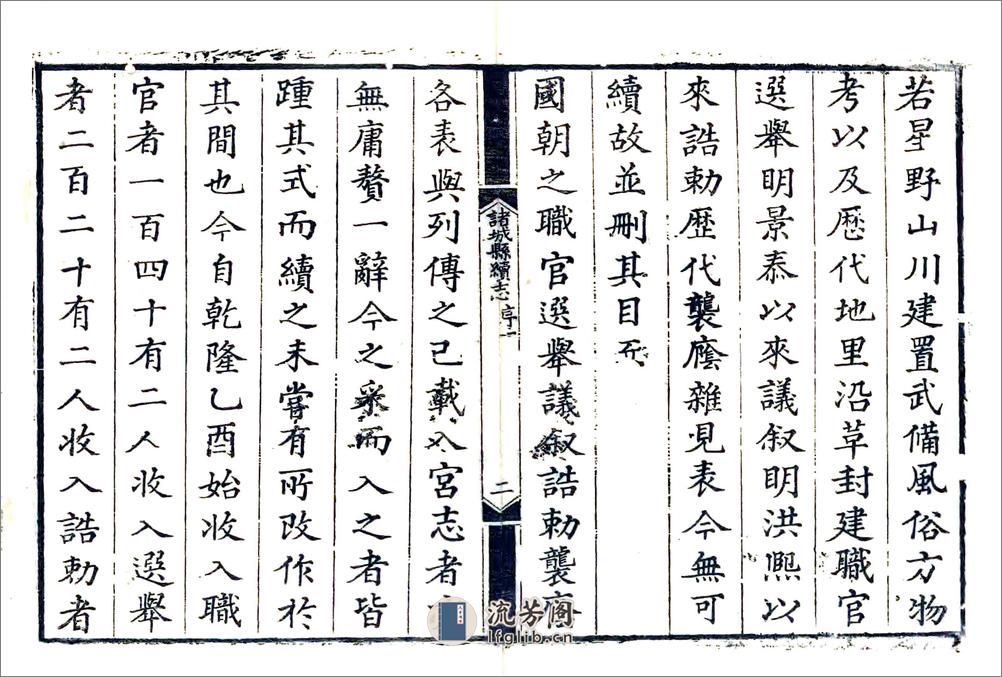 若星野山川建置武備風俗方物
考以及歷代地里沿革封建職官
選舉明景泰以來議叙明洪熙以
來誥勅歷代襲廕雜見表今無可
續故並刪其目
國朝之職官選舉議叙誥勅襲廕
諸城縣續志 序一 二
各表與列傳之已載入宮志者
無庸贅一辭今之采而入之者皆
踵其式而續之未嘗有所改作於
其間也今自乾隆乙酉始收入職
官者一百四十有二人收入選舉
者二百二十有二人收入誥勅者
流芳阁
lfglib.cn